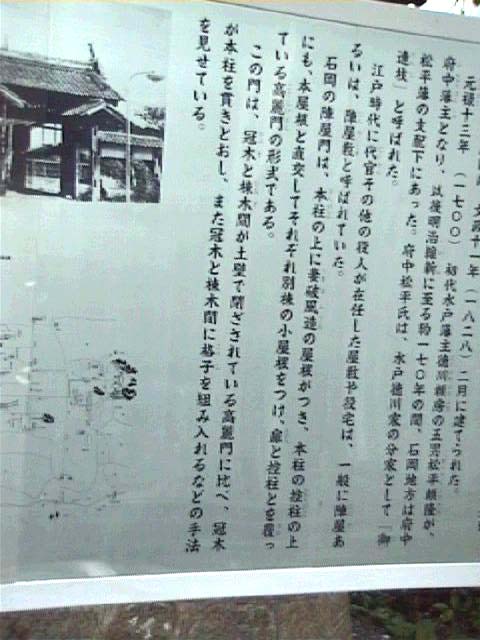 文政十一年(一八二八)二月に建てられた。
元禄十三年(一七〇〇)初代水戸藩主徳川頼房の五男松平頼隆が、
府中藩主となり、以後明治維新に至る約一七〇年の間、石岡地方は府中
松平藩の支配下にあった。府中松平氏は、水戸徳川家の分家として「御
連枝」と呼ばれた。
江戸時代に代官その他の役人が在任した屋敷や役宅は、一般に陣屋あ
るいは、陣屋敷と呼ばれていた。
石岡の陣屋門は、本柱の上に妻破風造の屋根がつき、本柱の控柱の上
にも、本屋根と直交してそれぞれ別棟の小屋根をつけ、扉と控柱とを覆っ
ている高麗門の形式である。
この門は、冠木と棟木間が土壁で閉ざされている高麗門に比べ、冠木
が本柱を貫きとおし、また冠木と棟木間に格子を組み入れるなどの手法
を見せている。